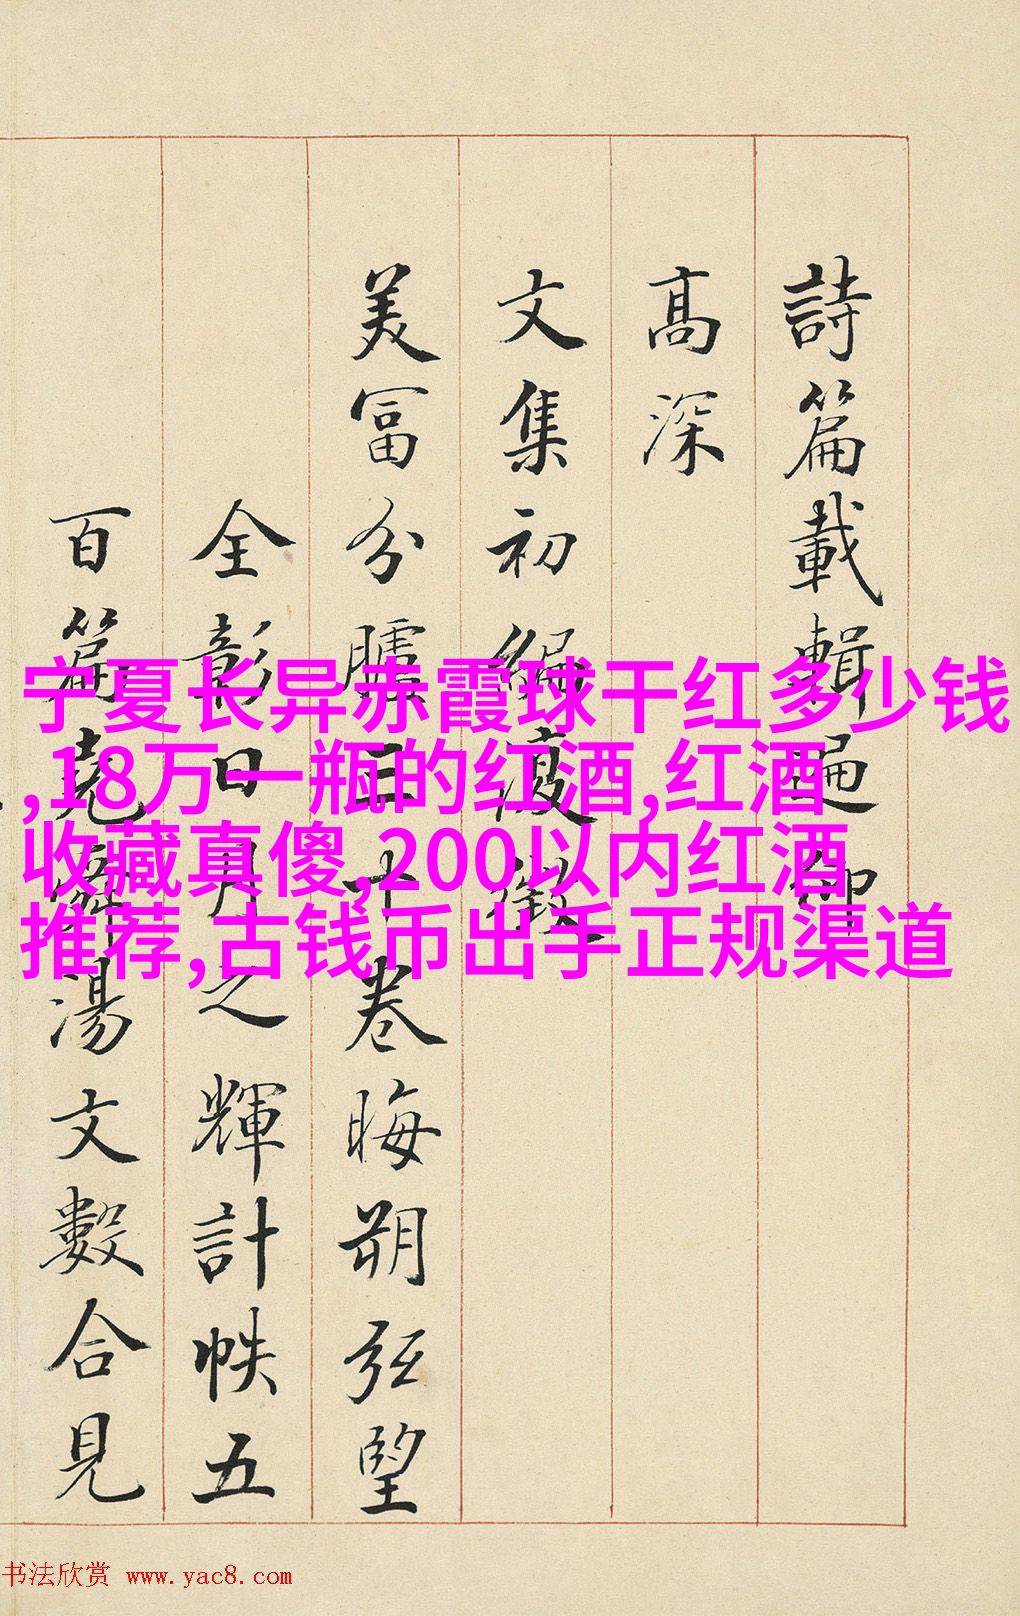 詩篇載輯遍御
高深
文集初編復徵
美富分臚三十卷晦朔弦望
全彰日月之輝計帙五
百篇堯舜湯文數合見
宁夏长异赤霞球干红多少钱
,18万一瓶的红酒,红酒
收藏真傻,200以内红酒
推荐,古钱币出手正规渠道
书法欣赏 www.yac8.com